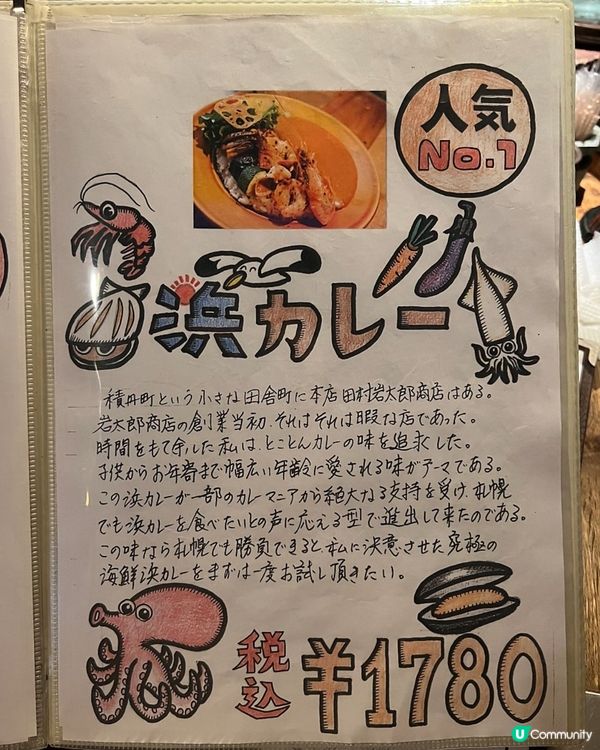 人気
No.1
浜カレー
積丹町という小さな田舎町に本店田村岩太郎商店はある。
岩太郎商店の創業当初、それはそれは暇な店であった。
時間をもて余した私は、とことんカレーの味を追求した。
子供からお年寄まで幅広い年齢に愛される味がテーマである。
この浜カレーが一部のカレーマニアから絶大なる支持を受け、札幌
でも浜カレーを食べたいとの声に応える型で進出して来たのである。
この味なら札幌でも勝負できると、私に決意させた究極の
海鮮浜カレーをまずは一度お試し頂きたい。
税込
¥1780
U Community